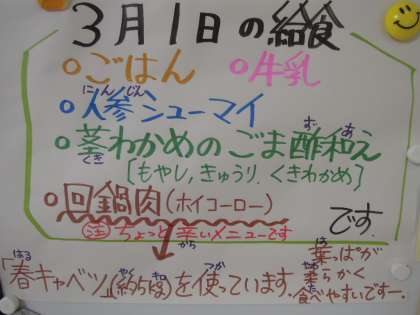 3月1日の給食
○ごはん ○牛乳
○人参シューマイ
にんじん
○茎わかめのごま酢和え
くき ず あ
[もやし,きゅうり,くきわかめ]
○回鍋肉(ホイコーロー)
です。
注 ちょっと辛いメニューです
から
「春キャベツ」(約55kg)を使っています。
はる やく つか
葉っぱが
は
柔らかく
やわ
食べやすいですー。
た